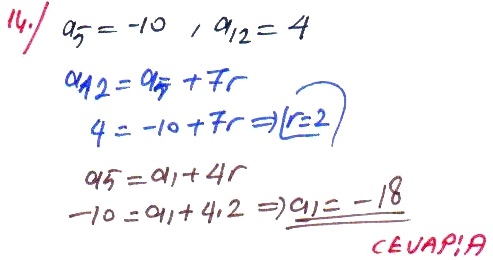 14./ a5 = -10 , a12 = 4
a12 = a5 + 7r
4 = -10 + 7r ⇒ r = 2
a5 = a1 + 4r
-10 = a1 + 4.2 ⇒ a1 = -18
CEVAP:A